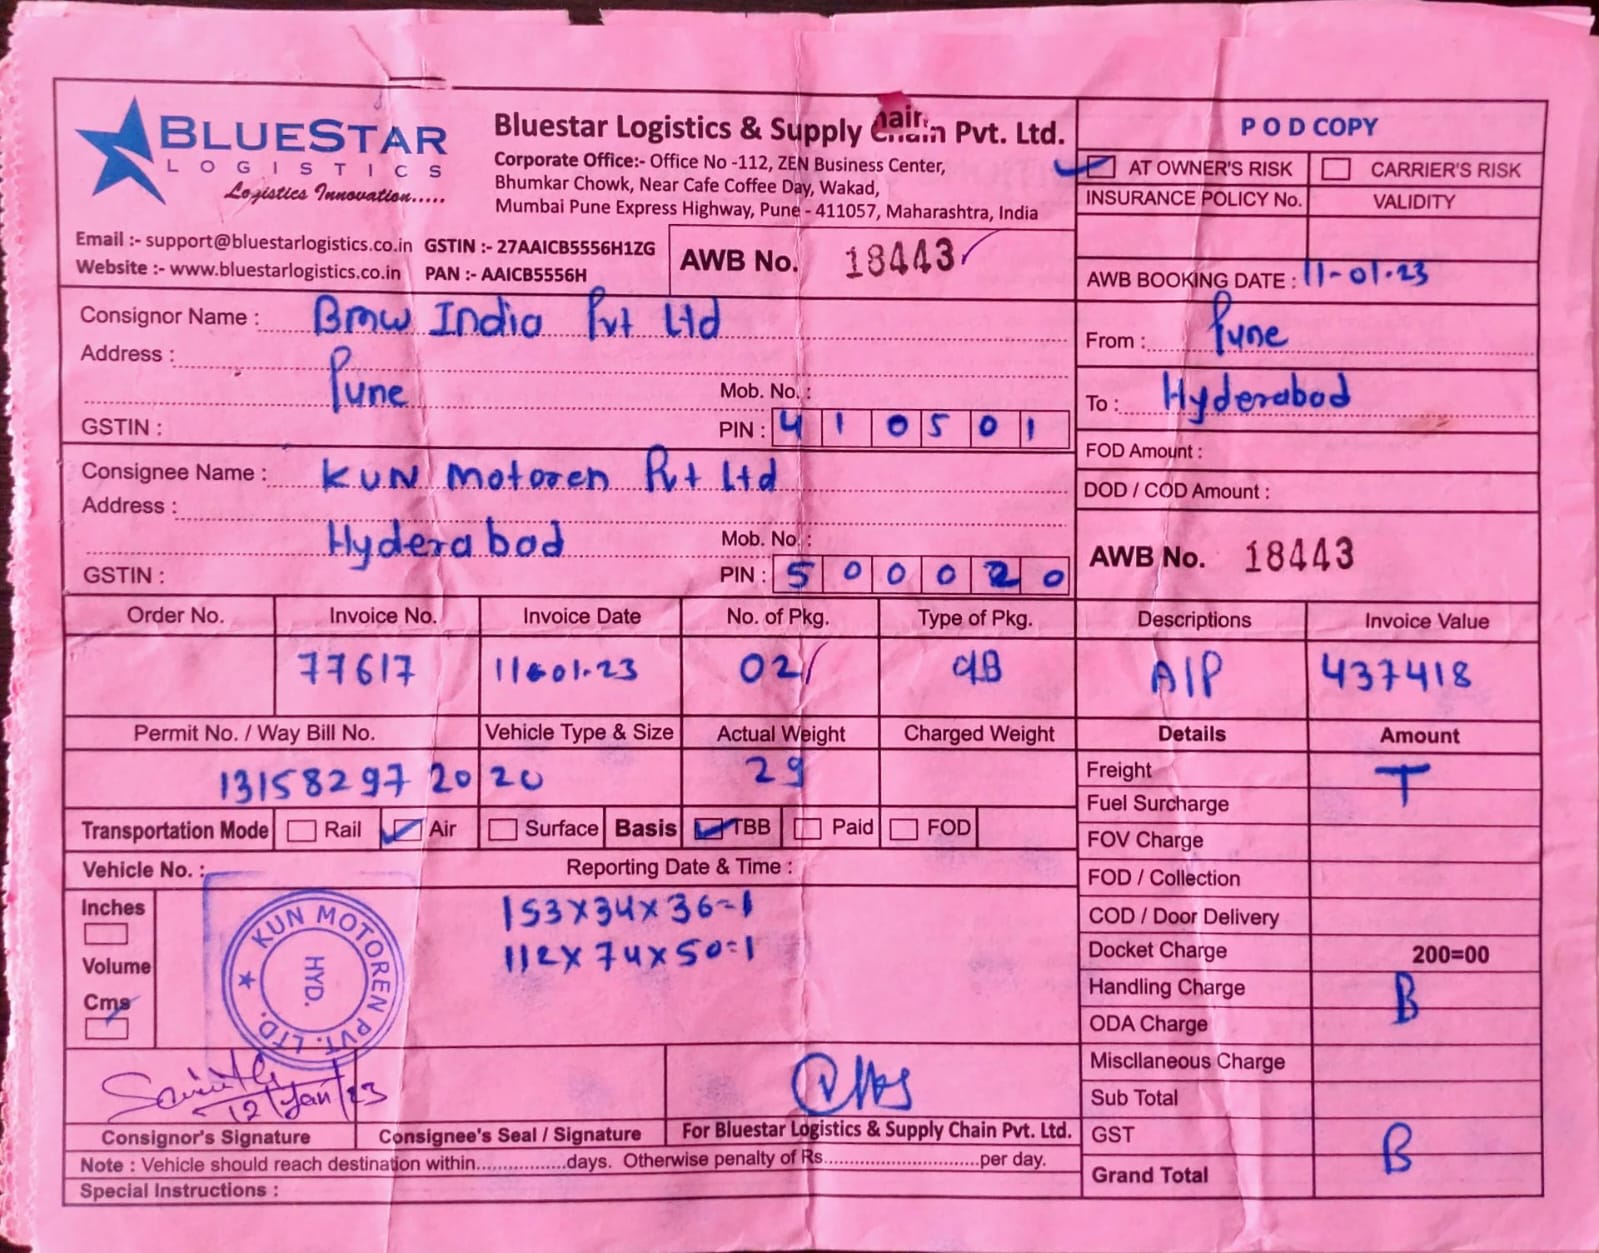 BLUESTAR
LOGISTICS
Logistics Innovation.....
Bluestar Logistics & Supply Chain Pvt. Ltd.
Corporate Office:- Office No -112, ZEN Business Center,
Bhumkar Chowk, Near Cafe Coffee Day, Wakad,
Mumbai Pune Express Highway, Pune - 411057, Maharashtra, India
Email :- support@bluestarlogistics.co.in GSTIN :- 27AAICB5556H1ZG
Website :- www.bluestarlogistics.co.in PAN :- AAICB5556H
AWB No. 18443
P O D COPY
AT OWNER'S RISK CARRIER'S RISK
INSURANCE POLICY No. VALIDITY
AWB BOOKING DATE : 11-01-23
Consignor Name : BMW India Pvt Ltd
Address :
Pune Mob. No. :
GSTIN : PIN : 4 1 0 5 0 1
From : Pune
To : Hyderabad
Consignee Name : KUN Motoren Pvt Ltd
Address :
Hyderabad Mob. No. :
GSTIN : PIN : 5 0 0 0 2 0
FOD Amount :
DOD / COD Amount :
AWB No. 18443
Order No. Invoice No. Invoice Date No. of Pkg. Type of Pkg. Descriptions Invoice Value
77617 11-01-23 02/ AIP 437418
Permit No. / Way Bill No. Vehicle Type & Size Actual Weight Charged Weight Details Amount
131582972020 29
Transportation Mode Rail Air Surface Basis TBB Paid FOD
Vehicle No. : Reporting Date & Time :
Inches
Volume
Cms
153x34x36=1
112x74x50=1
KUN MOTOREN PVT. LTD.
HYD.
Freight T
Fuel Surcharge
FOV Charge
FOD / Collection
COD / Door Delivery
Docket Charge 200=00
Handling Charge B
ODA Charge
Miscllaneous Charge
Sub Total
GST B
Grand Total
12/Jan/23
Consignor's Signature Consignee's Seal / Signature For Bluestar Logistics & Supply Chain Pvt. Ltd.
Note : Vehicle should reach destination within.................days. Otherwise penalty of Rs............................per day.
Special Instructions :